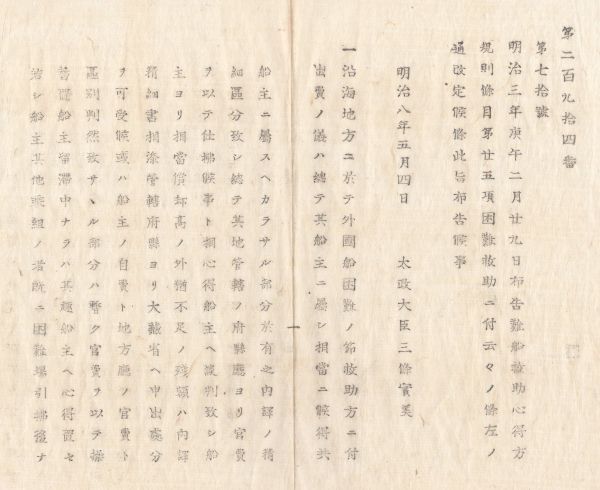 第二百九拾四番
第七拾號
明治三年庚午二月廿九日布告難船救助心得方
規則條目第廿五項困難救助ニ付云々ノ條左ノ
通改定候條此旨布告候事
明治八年五月四日　　太政大臣三條實美
一沿海地方ニ於テ外國船困難ノ節救助方ニ付
出費ノ儀ハ總テ其船主ニ屬シ相當ニ候得共
一
船主ニ屬スヘカラサル部分於有之内譯ノ精
細區分致シ總テ其地管轄ノ府縣廳ヨリ官費
ヲ以テ仕拂候事ト相心得船主ヘ談判致シ船
主ヨリ相當償却高ノ外猶不足ノ殘額ハ内譯
精細書相添管轄府縣ヨリ大藏省ヘ申出處分
ヲ可受候或ハ船主ノ自費ト地方廳ノ官費ト
區別判然致サヽル部分ハ暫ク官費ヲ以テ操
替置船主帶滯中ナラハ其趣船主ヘ心得置セ
若シ船主其他乘組ノ者既ニ困難場引拂後ナ